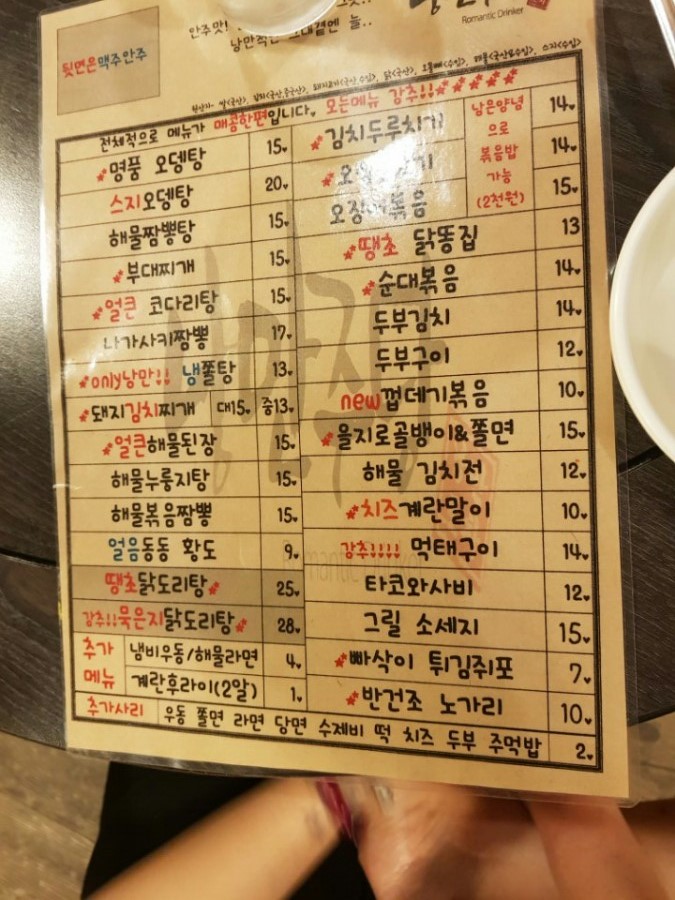 Romantic Drinker
안주맛!
뒷면은맥주안주
전체적으로 메뉴가 매콤한편입니다. 오는메뉴 강추!!
명품 오뎅탕 15
스지오뎅탕 20
해물짬뽕탕 15
부대찌개 15
얼큰 코다리탕 15
나가사키짬뽕 17
only낭만!! 냉쫄탕 13
돼지김치찌개 대15 중13
얼큰해물된장 15
해물누룽지탕 15
해물볶음짬뽕 15
얼음동동 황도 9
땡초닭도리탕 25
강추!!묵은지닭도리탕 28
추가메뉴
냄비우동/해물라면 4
계란후라이(2알) 1
김치두루치기 14
14
볶음 15
남은양념
으로
볶음밥
가능
(2천원)
땡초 닭똥집 13
순대볶음 14
두부김치 14
두부구이 12
new껍데기볶음 10
을지로골뱅이&쫄면 15
해물 김치전 12
치즈계란말이 10
강추!!!! 먹태구이 14
타코와사비 12
그릴 소세지 15
빠삭이 튀김쥐포 7
반건조 노가리 10
추가사리 우동 쫄면 라면 당면 수제비 떡 치즈 두부 주먹밥 2